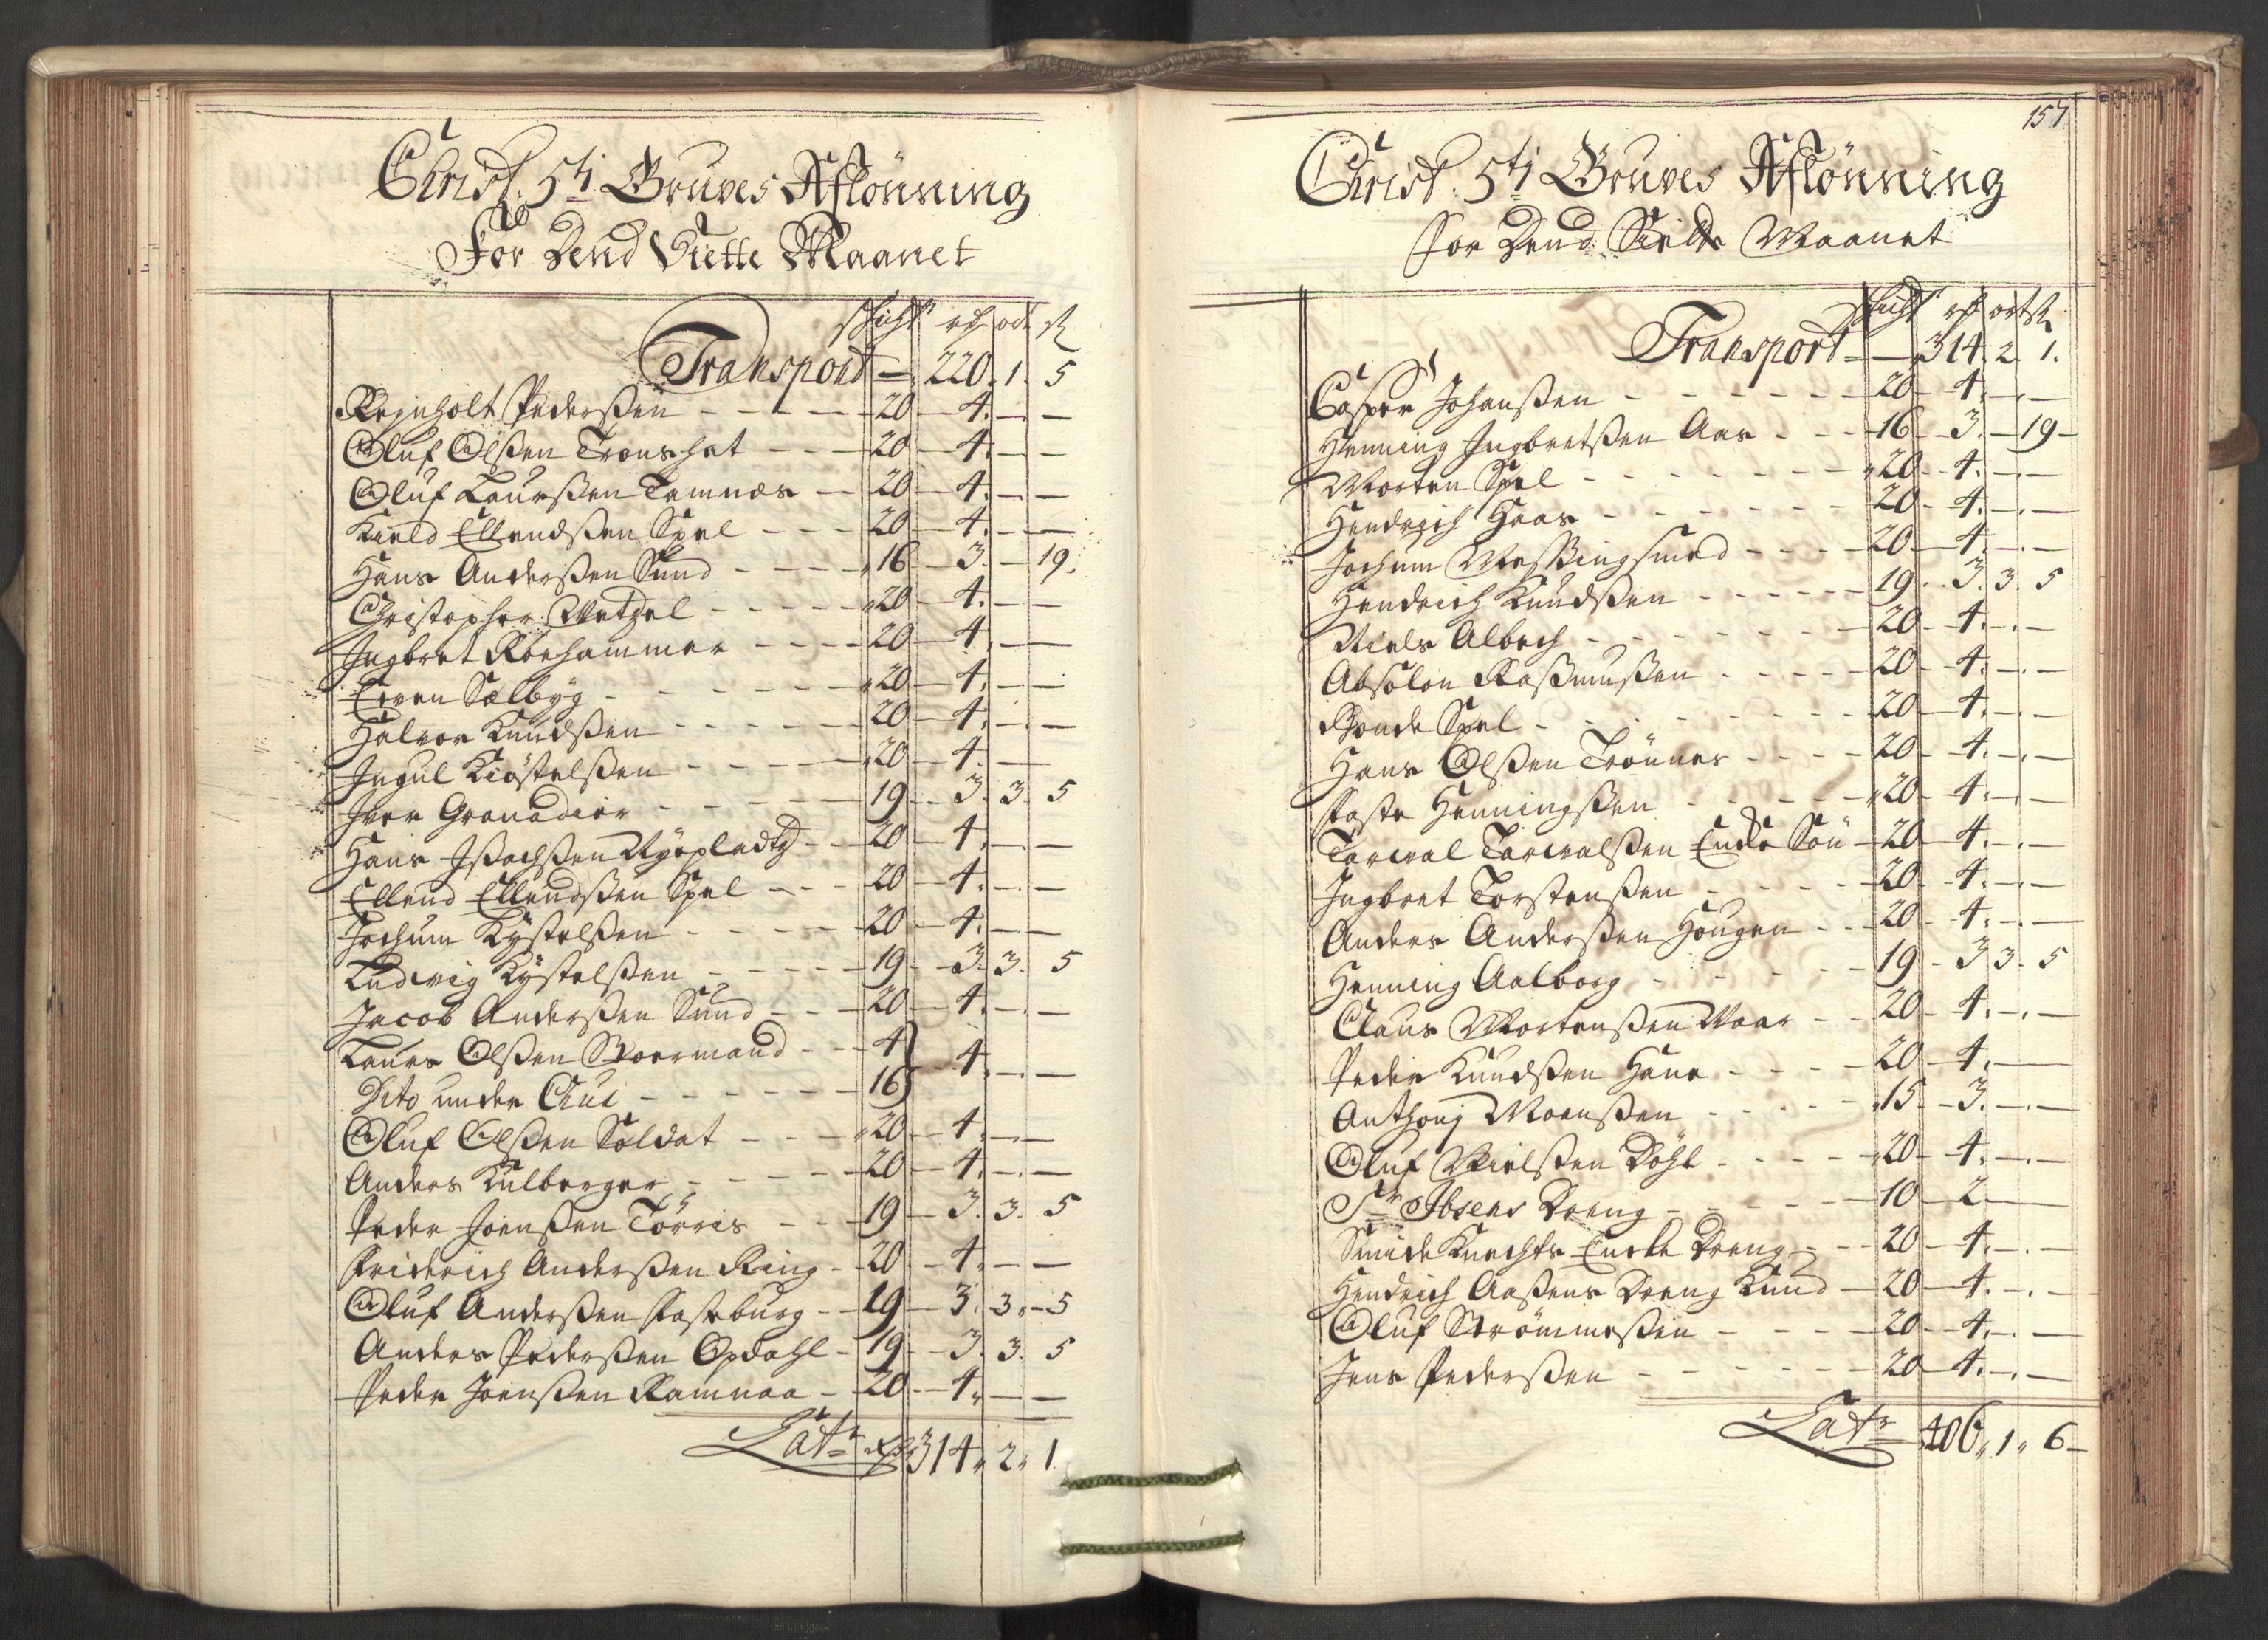 Christ: 5ti Gruves Aflönning
For Dend Siette Maanet
schicht rd ort sk
Transport — 220. 1. 5
Rejnholt Pederßen - - - 20 — 4. — —
Oluf Olßen Tronshat - - 20 — 4. — —
Oluf Laurßen Tamnes - 20 — 4. — —
Kield Ellendßen Spel - - - 20 — 4. — —
Hans Anderßen Sund - - - 16 — 3. — 19.
Christopher Wetzel - - - - 20 — 4. — —
Ingbret Röehammer - - - 20 — 4. — —
Even Sælbyg - - - - - 20 — 4. — —
Halvor Knudßen - - - - - 20 — 4. — —
Ingul Kiöstelßen - - - - 20 — 4. — —
Iver Granadier - - - - 19 - - 3. 3. 5
Hans Ißachßen - - 20 — 4. — —
Ellend Ellendßen Spel - - - 20 — 4. — —
Jochum Kystelßen - - - - 20 — 4. — —
Ludvig Kystelßen - - - - 19 - - 3. 3. 5
Jacob Anderßen Sund - - - 20 — 4. — —
Laurs Olßen Skoermand - - - 4
Dito under - - - - - 16 } 4. — —
Oluf Olßen Soldat - - - 20 — 4. — —
Anders Kulberger - - - - 20 — 4. — —
Peder Joenßen Törris - - - 19 — 3. 3. 5
Friderich Anderßen Ring - 20 — 4. — —
Oluf Anderßen Fosseburg - - 19 — 3. 3. 5
Anders Pederßen Opdahl - 19 - - 3. 3. 5
Peder Joenßen Ramnaa - 20 - - 4. — —
Latr rd 314. 2. 1.
157
Christ: 5ti Gruves Aflönning
for Dend Siette Maanet
schicht rd ort sk
Transport — — 314. 2. 1.
Casper Johanßen - - - - - - 20 — 4. — —
Henning Ingbretßen Aas - - - 16 — 3. — 19 —
Morten Spel - - - - - - - 20 — 4. — —
Hendrich Haas - - - - - - 20 — 4. — —
Jochum Meßingsmed - - - - 20 — 4. — —
Hendrich Knudßen - - - - - 19 - - 3. 3. 5
Niels Albech - - - - - - - 20 — 4. — —
Absolon Raßmußen - - - - 20 — 4. — —
Bonde Spel - - - - - - - 20 — 4. — —
Hans Olßen Trönnes - - - - 20 — 4. — —
Faste Henningßen - - - - 20 — 4. — —
Torval Torvalßen Enke Sön 20 — 4. — —
Ingbret Torstenßen - - - - 20 — 4. — —
Anders Anderßen Hougen - - 20 — 4. — —
Henning Aalborg - - - - - 19 - 3 3. 5
Claus Mortenßen Waar - - 20 — 4. — —
Peder Knudßen Hane - - - 20 — 4. — —
Anthonj Monßen - - - - - 15 — 3. — —
Oluf Nielßen Döhl - - - - 20 — 4. — —
Sr Ibsens Dreng - - - - 10 — 2 — —
Smide Knechts Encke Dreng - - 20 — 4. — —
Hendrich Aaßens Dreng Knud - 20 — 4. — —
Oluf Strömmeßen - - - - 20 — 4. — —
Jens Pederßen - - - - - - 20 — 4. — —
Latr 406. 1. 6 —